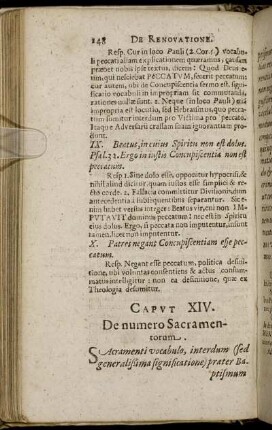 148 DE RENOVATIONE.
Resp. Cur in loco Pauli (2. Cor. 5.) vocabu-
li peccati aliam explicationem quæramus; quàm
præbet nobis ipse textus, dicens: Quod Deus e-
um, qui nescivit PECCATUM, fecerit peccatum
cur autem, ubi de Concupiscentia sermo est, sig-
nificatio vocabuli in propriam sit commutanda,
rationes nullæ sunt. 2. Neque (in loco Pauli)
impropria est locutio, sed Hebræis usitata,
peccatum sumitur interdum pro Victima pro peccato.
Itaque Adversarii crassam suam ignorantiam pro-
dunt.
IX. Beatus, in cuius Spiritu non est dolus.
Psal. 32. Ergo in iustis Concupiscentia non est
peccatum.
Resp. 1. Sine dolo esse, opponitur hypocrisi, &
nihil aliud dicitur, quam iustus esse simplici & re-
cto corde. 2. Fallacia committitur Divisionis, dum
antecedentia à subsequentibus separantur. Sic e-
nim habet versus integer: Beatus vir, cui non IM-
PUTAVIT dominus peccatum: nec est in Spiritu
eius dolus. Ergo, si peccata non imputentur, insunt
tamen, licet non imputentur.
X. Patres negant Concupiscentiam esse pec-
catum.
Resp. Negant esse peccatum, politica defini-
tione, ubi voluntas consentiens & actus consum-
matus intelligitur: non ea definitione, quæ ex
Theologia desumitur.
CAPUT XIV.
De numero Sacramen-
torum.
SAcramenti vocabulo, interdum (sed
generalissima significatione) præter Ba-
ptismum